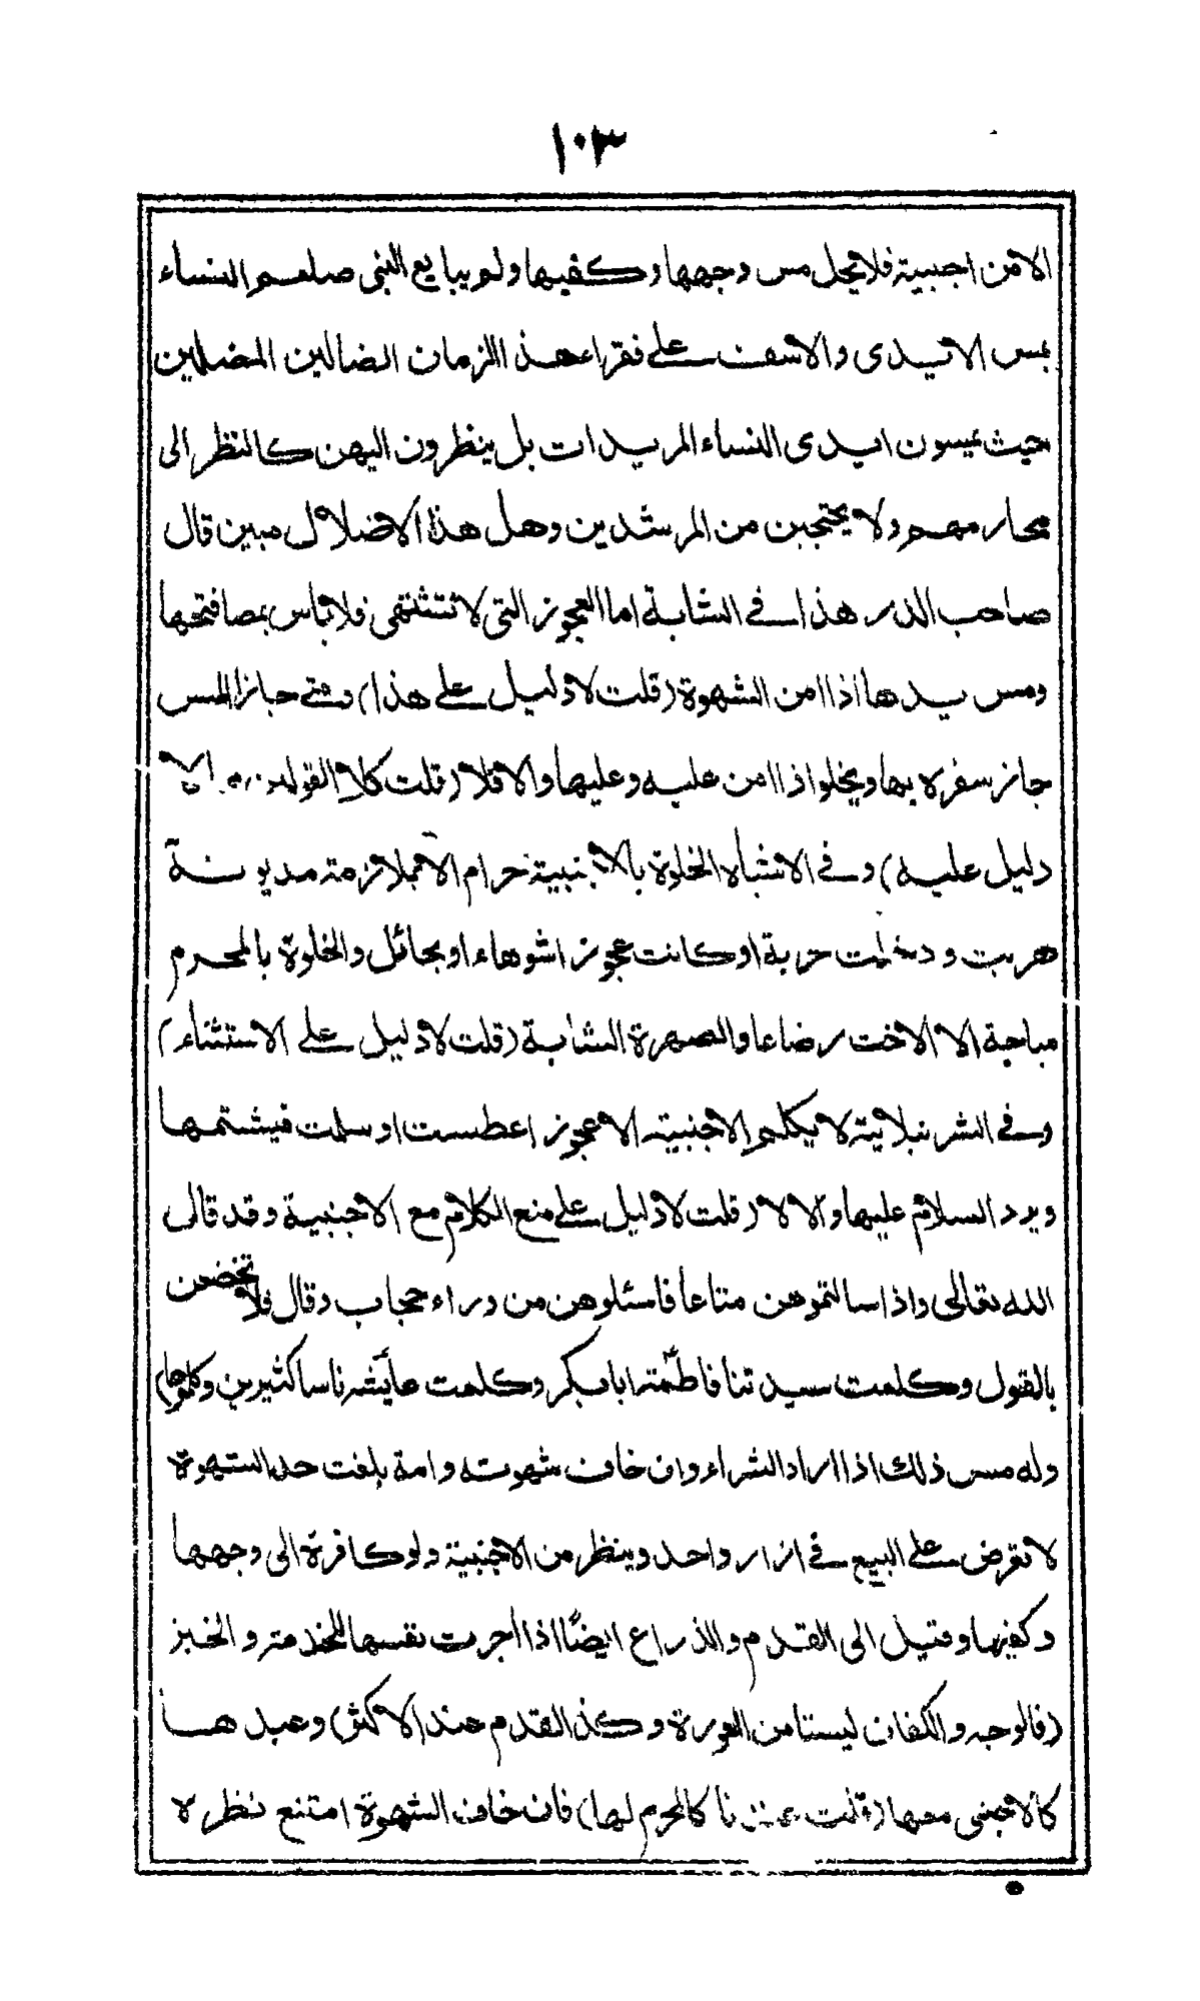 ١٠٣
الا من اجنبية فلا يحل مس وجهها وكفيها ولم يبايع النبى صلعم النساء
بمس الايدى والاسف على فقراء هذا الزمان الضالين المضلين
حيث يمسون ايدى النساء المريدات بل ينظرون اليهن كالنظر الى
محارمهم ولا يحتجبن من المرشدين وهل هذا الا ضلال مبين قال
صاحب الدر هذا فى الشابة اما العجوز التى لا تشتهى فلا باس بمصافحتها
ومس يدها اذا امن الشهوة (قلت لا دليل على هذا) ومتى جاز المس
جاز سفره بها ويخلو اذا امن عليه وعليها والا فلا (قلت كلا القولين الا
دليل عليه) وفى الاشباه الخلوة بالاجنبية حرام الا لملازمة مديونة
هربت و دخلت خربة او كانت عجوزا شوهاء او بحائل والخلوة بالمحرم
مباحة الا الاخت رضاعا والصهرة الشابة (قلت لا دليل على الاستثناء)
وفى الشرنبلالية لا يكلم الاجنبية الا عجوزا عطست او سلمت فيشتمها
ويرد السلام عليها والا لا (قلت لا دليل على منع الكلام مع الاجنبية وقد قال
الله تعالى واذا سالتموهن متاعا فاسئلوهن من وراء حجاب وقال فلا تخضعن
بالقول وكلمت سيدتنا فاطمة ابا بكر وكلمت عايشه ناسا كثيرين وكلموها)
وله مس ذلك اذا اراد الشراء وان خاف شهوته وامة بلغت حد الشهوة
لا تعرض على البيع فى ازار واحد وينظر من الاجنبية ولو كافرة الى وجهها
وكفيها وقيل الى القدم والذراع ايضًا اذا اجرت نفسها للخدمة والخبز
(فالوجه والكفان ليستا من العورة وكذا القدم عند الاكثر) وعبدها
كالاجنبى معها (قلت عندنا كالمحرم لها) فان خاف الشهوة امتنع نظره